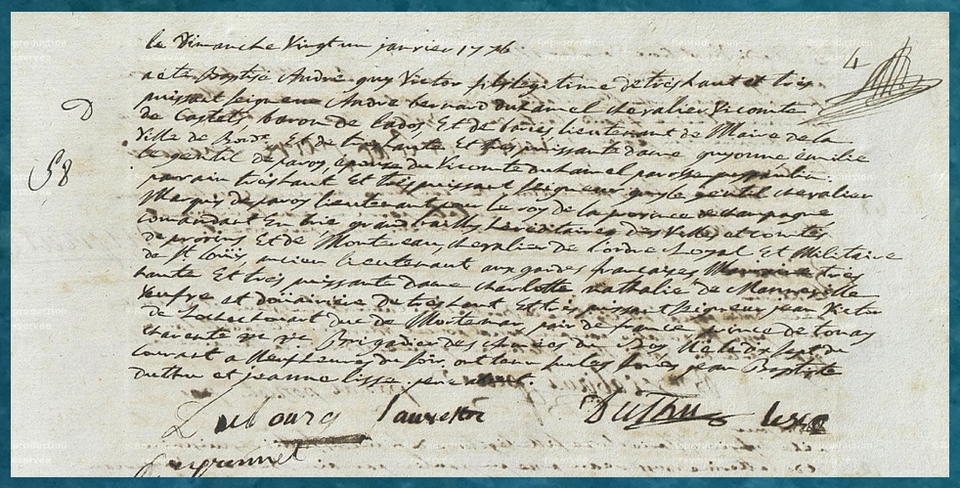 le Dimanche vingt un janvier 1776
4
a ete Baptisé André guy Victor fils legitime de tres haut et tres
D
puissant seigneur André bernard duhamel chevalier Vicomte
de Castets baron de lados Et de baries lieutenant de Maire de la
58
Ville de Bord.x Et de tres haute Et tres puissante dame guyonne émilie
le gentil de paroy épouse du Vicomte duhamel paroisse puypaulin:
parrain tres haut Et tres puissant seigneur guy le gentil chevalier
Marquis de paroy lieutenant pour le roy de la province de champagne
comandant En brie grand bailly hereditaire des Villes et comtés
de provins Et de Montereau chevalier de l'ordre Royal Et Militaire
de St Louis ancien lieutenant aux gardes françaises tres
haute Et tres puissante dame charlotte nathalie de Manneville
Veufve et douairiere de tres haut Et tres puissant seigneur jean Victor
de Rochechouart duc de Mortemar pair de france prince de tonay
charente Brigadier des armées du Roy Né le dix sept du
courant a Neuf heures du soir, ont tenu sur les fonts jean Baptiste
duthu et jeanne lisse
Dubourg
Duthu